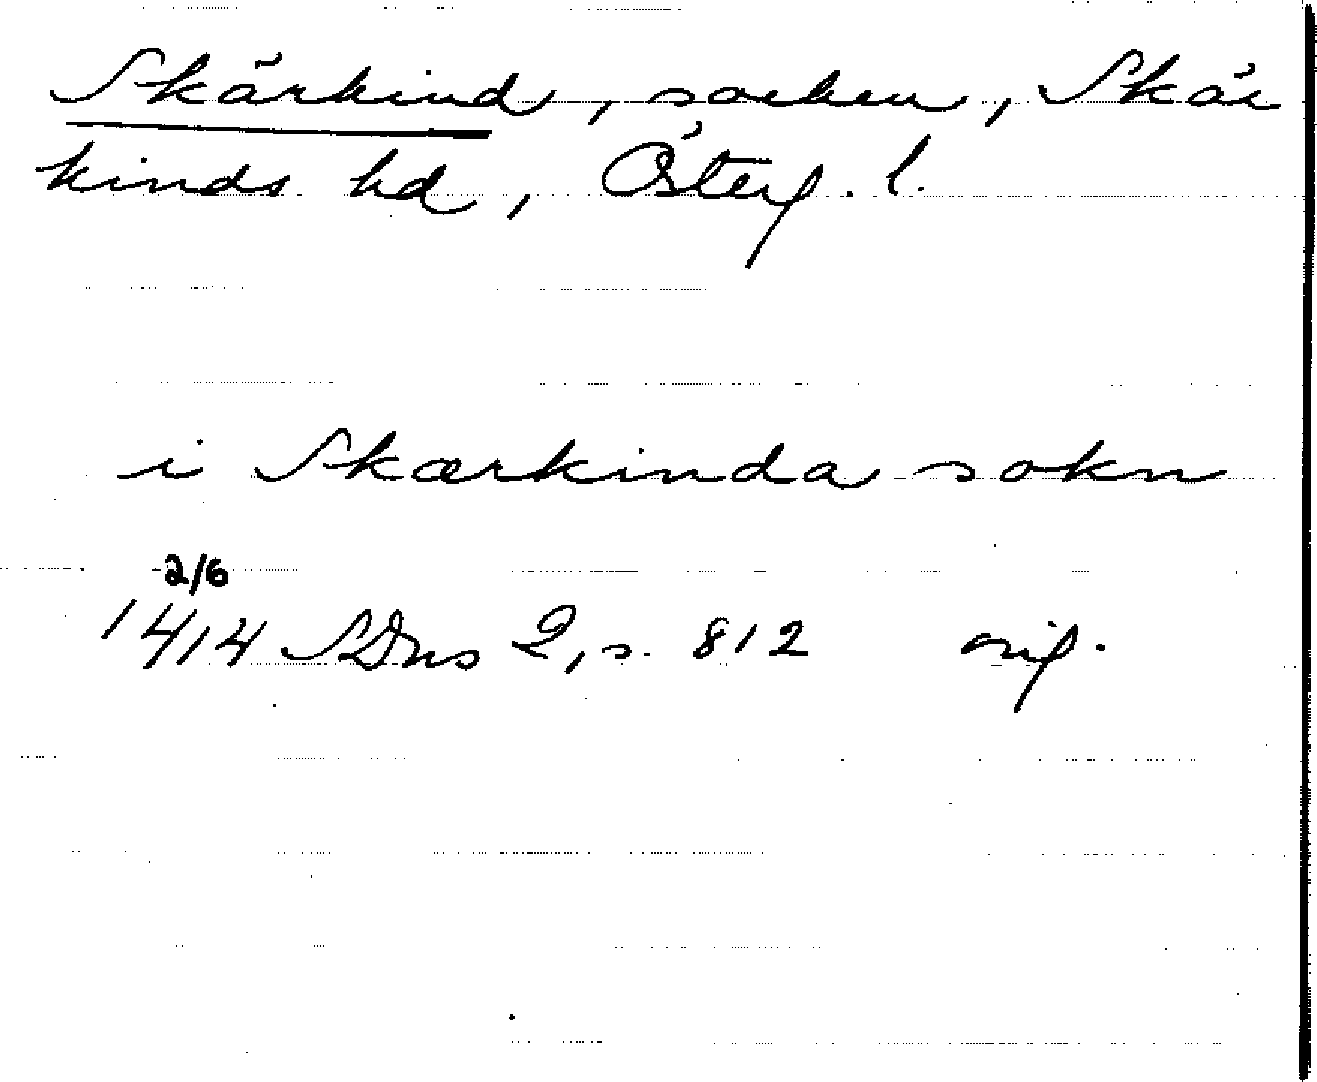 Skärkind, socken, Skär
kinds hd, Österg. l.
i Skærkinda sokn
2/6
1414 SDns 2, s. 812 orig.